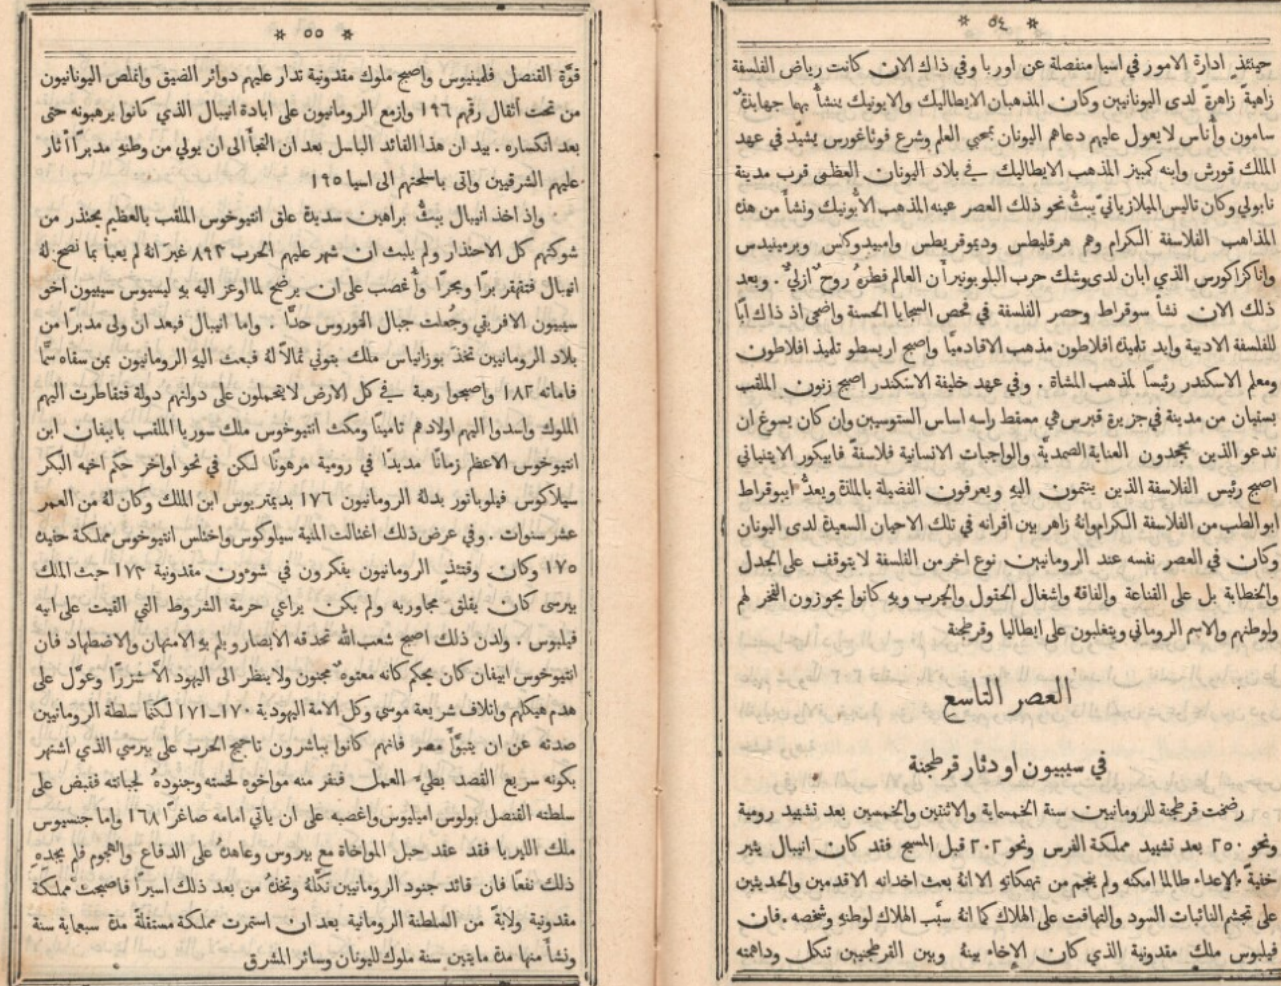 * ٥٤ *
حينئذٍ ادارة الامور في اسيا منفصلة عن اوربا وفي ذاك الان كانت رياض الفلسفة
زاهيةً زاهرةً لدى اليونانيين وكان المذهبان الايطاليك والايونيك ينشأ بهما جهابذةٌ
سامون وأُناس لا يعول عليهم دعاهم اليونان بمحبي العلم وشرع فوثاغورس يشيّد في عهد
الملك قورش وابنه كمبيز المذهب الايطاليك في بلاد اليونان العظمى قرب مدينة
نابولي وكان تاليس الميلازيانيّ يبثُّ نحو ذلك العصر عينه المذهب الأيونيك ونشأ من هذه
المذاهب الفلاسفة الكرام وهم هرقليطس وديموقريطس وامبيدوكلس وبرمينيدس
واناكزاكورس الذي ابان لدى وشك حرب البلوبونيز أن العالم فطرهُ روحٌ ازليٌّ . وبعد
ذلك الان نشأ سوقراط وحصر الفلسفة في فحص السجايا الحسنة واضحى اذ ذاك ابًا
للفلسفة الادبية وايد تلميذه افلاطون مذهب الاقادميًا واصبح اريسطو تلميذ افلاطون
ومعلم الاسكندر رئيسًا لمذهب المشاة . وفي عهد خليفة الاسكندر اصبح زنون الملقب
بستيان من مدينة في جزيرة قبرس هي مسقط راسه اساس الستوسيين وإن كان يسوغ ان
ندعو الذين يجحدون العناية الصمديَّة والواجبات الانسانية فلاسفةً فابيكور الايتنياني
اصبح رئيس الفلاسفة الذين ينتمون اليهِ ويعرفون الفضيلة بالملذة ويعدُّ ايبوقراط
ابو الطب من الفلاسفة الكرام وانهُ زاهر بين اقرانه في تلك الاحيان السعيدة لدى اليونان
وكان في العصر نفسه عند الرومانيين نوع اخر من الفلسفة لا يتوقف على الجدل
والخطابة بل على القناعة والفاقة واشغال الحقول والحرب وبهِ كانوا يحوزون الفخر لهم
ولوطنهم والاسم الروماني ويتغلبون على ايطاليا وقرطجنة
العصر التاسع
في سيبيون او دثار قرطجنة
رضخت قرطجنة للرومانيين سنة الخمسماية والاثنتين والخمسين بعد تشييد رومية
ونحو ٢٥٠ بعد تشييد مملكة الفرس ونحو ٢٠٢ قبل المسيح فقد كان انيبال يثير
خفيةً الاعداء طالما امكنه ولم ينجم من تهمكاتهِ الا انهُ بعث اخدانه الاقدمين والحديثين
على تجشم النائبات السود والتهافت على الهلاك كما انهُ سبَّب الهلاك لوطنهِ وشخصه . فان
فيلبوس ملك مقدونية الذي كان الإخاء بينهُ وبين القرطجنيين تنكل وداهمته
* ٥٥ *
قوَّة القنصل فلمينيوس واصبح ملوك مقدونية تدار عليهم دوائر الضيق وانملص اليونانيون
من تحت أثقال رقهم ١٩٦ وازمع الرومانيون على ابادة انيبال الذي كانوا يرهبونه حتى
بعد انكساره . بيد ان هذا القائد الباسل بعد ان التجأ الى ان يولي من وطنهِ مدبرًا أثار
عليهم الشرقيين واتى باسلحتهم الى اسيا ١٩٥
واذ اخذ انيبال يبثُّ براهين سديدة علق انتيوخوس الملقب بالعظيم يحتذر من
شوكتهم كل الاحتذار ولم يلبث ان شهر عليهم الحرب ٨٩٣ غيرَ انهُ لم يعبأ بما نصح لهُ
انيبال فتقهقر برًّا وبحرًا وأُغصب على ان يرضخ لما اوعز اليه بهِ ليسيوس سيبيون اخو
سيبيون الافريقي وجُعلت جبال الثوروس حدًّا . واما انيبال فبعد ان ولى مدبرًا من
بلاد الرومانيين تخذ بوزانياس ملك بتوني ثمالاً لهُ فبعث اليهِ الرومانيون بمن سقاه سمًّا
فاماته ١٨٢ واصبحوا رهبة في كل الارض لا يتحملون على دولتهم دولة فتقاطرت اليهم
الملوك واسدوا اليهم اولادهم تامينًا ومكث انتيوخوس ملك سوريا الملقب بابيفان ابن
انتيوخوس الاعظم زمانًا مديدًا في رومية مرهونًا لكن في نحو اواخر حكم اخيه البكر
سيلاكوس فيلوباتور بدلهُ الرومانيون ١٧٦ بديمتريوس ابن الملك وكان لهُ من العمر
عشر سنوات . وفي عرض ذلك اغتالت المنية سيلوكوس واختلس انتيوخوس مملكة حنيذ
١٧٥ وكان وقتئذٍ الرومانيون يفكرون في شوءون مقدونية ١٧٣ حيث الملك
بيرسى كان يقلق مجاوريه ولم يكن يراعي حرمة الشروط التي القيت على ابيه
فيلبوس . ولدن ذلك اصبح شعب الله تحدقه الابصار ويلم بهِ الامتهان والاضطهاد فان
انتيوخوس ابيفان كان يحكم كانه معتوهٌ مجنون ولا ينظر الى اليهود الاَّ شزرًا وعوَّل على
هدم هيكلهم واتلاف شريعة موسى وكل الامة اليهودية ١٧٠-١٧١ لكنما سلطة الرومانيين
صدته عن ان يتبوَّأ مصر فانهم كانوا يباشرون تاجيج الحرب على بيرسي الذي اشتهر
بكونه سريع القصد بطيء العمل فنفر منه مواخوه لخسته وجنودهُ لجبانته فقبض على
سلطته القنصل بولوس اميليوس واغصبه على ان ياتي امامه صاغرًا ١٦٨ واما جنسيوس
ملك الليريا فقد عقد حبل المواخاة مع بيروس وعاهدهُ على الدفاع والهجوم فلم يجدِهِ
ذلك نفعًا فان قائد جنود الرومانيين نكَّلهُ وتخذهُ من بعد ذلك اسيرًا فاصبحت مملكة
مقدونية ولايةً من السلطنة الرومانية بعد ان استمرت مملكة مستقلةً مدة سبعماية سنة
ونشأ منها مدة مايتين سنة ملوك لليونان وسائر المشرق